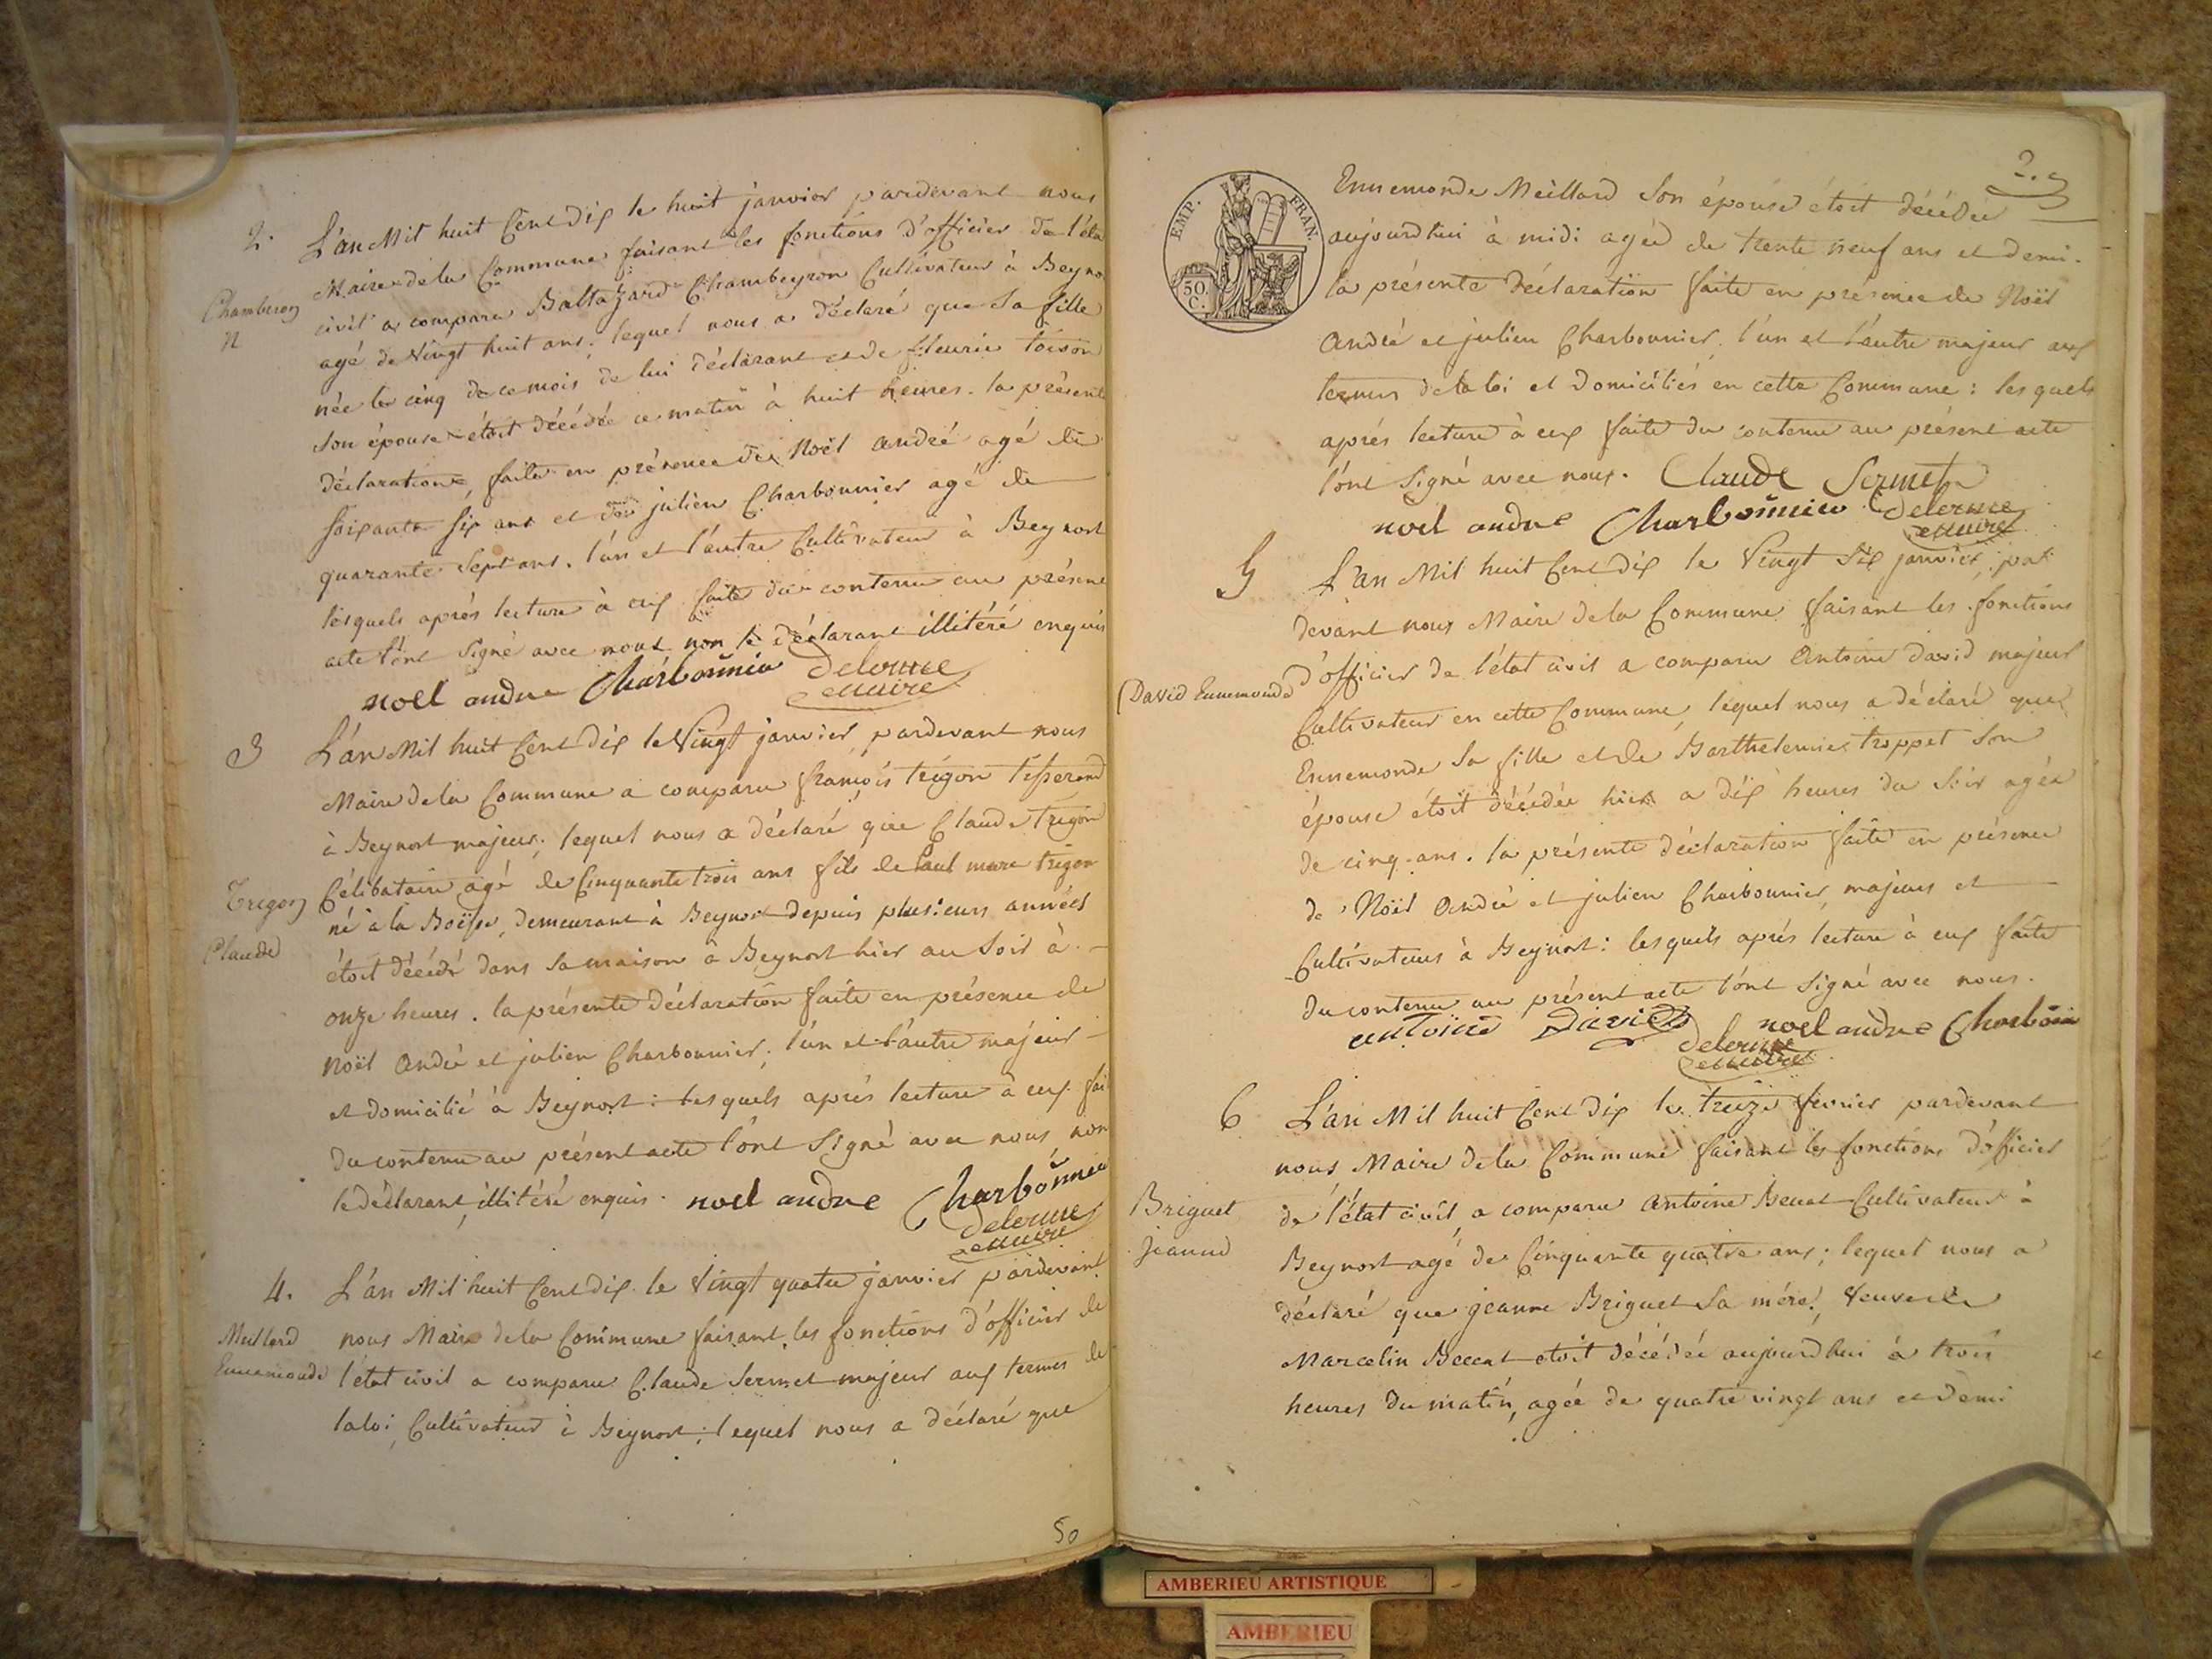 2.
L'an Mil huit Cent dix le huit janvier pardevant nous
Maire de la Commune faisant les fonctions d'officier de l'éta
Chamberon
civil a comparu Baltazard Chambeyron Cultivateur à Beyno
n
agé de Vingt huit ans: lequel nous a déclaré que sa fille
née le cinq de ce mois de lui déclarant et de fleurie toison
son épouse étoit décédée ce matin à huit heures. la présente
déclaration faite en présence de Noël andré agé de
soixante six ans et de julien Charbonnier agé de
quarante sept ans. l'un et l'autre Cultivateur à Beynost
lesquels aprés lecture à eux faite du contenu au présent
acte l'ont signé avec nous non le déclarant illitéré enquis
noel andre Charbonnier delorme
maire
3
L'an Mil huit Cent dix le Vingt janvier, pardevant nous
Maire de la Commune a comparu françois trégon Tisserand
à Beynost majeur; lequel nous a déclaré que Claude Trégon
Trégon
Célibataire agé de Cinquante trois ans fils de Paul marc trégon
né à la Boisse, demeurant à Beynost depuis plusieurs années
Claude
étoit décédé dans sa maison à Beynost hier au Soir à
onze heures. la présente déclaration faite en présence de
Noël André et julien Charbonnier; l'un et l'autre majeur
et domicilié à Beynost: lesquels aprés lecture à eux fai
du contenu au présent acte l'ont signé avec nous, non
le déclarant, illitéré enquis. noel andre Charbonnier
delorme
maire
4.
L'an Mil huit Cent dix le Vingt quatre janvier pardevant
Meillard
nous Maire de la Commune faisant les fonctions d'officier de
Ennemonde
l'état civil a comparu Claude Sermet majeur aux termes de
la loi, Cultivateur à Beynost; lequel nous a déclaré que
50
2.
EMP. FRAN.
50.
C.
Ennemonde Meillard Son épouse étoit décédée
aujourdhui à midi agée de trente neuf ans et demi.
la présente déclaration faite en présence de Noël
André et julien Charbonnier, l'un et l'autre majeur aux
termes de la loi et domiciliés en cette Commune: les quels
aprés lecture à eux faite du contenu au présent acte
l'ont signé avec nous. Claude Sermet
noel andre Charbonnier delorme
maire
5
L'an Mil huit Cent dix le Vingt six janvier, par
devant nous Maire de la Commune faisant les fonctions
David Ennemonde
d'officier de l'état civil a comparu Antoine david majeur
Cultivateur en cette Commune, lequel nous a déclaré que
Ennemonde sa fille et de Barthelemie troppet Son
épouse étoit décédée hier a dix heures du Soir agée
de cinq ans. la présente déclaration faite en présence
de Noël André et julien Charbonnier, majeurs et
Cultivateurs à Beynost: lesquels aprés lecture à eux faite
du contenu au présent acte l'ont signé avec nous.
antoine David noel andre Charbonnier
delorme
maire
6
L'an Mil huit Cent dix le treize février pardevant
nous Maire de la Commune faisant les fonctions d'officier
Briguet
de l'état civil a comparu Antoine Cultivateur à
Jeanne
Beynost agé de Cinquante quatre ans; lequel nous a
déclaré que jeanne Briguet sa mére, Veuve de
Marcelin étoit décédée aujourdhui à trois
heures du matin, agée de quatre vingt ans et demi
AMBERIEU ARTISTIQUE
AMBERIEU